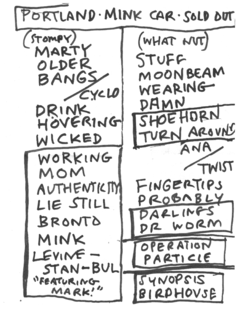 PORTLAND · MINK CAR · SOLD OUT
(STOMPY)
MARTY
OLDER
BANGS
/CYCLO
DRINK
HOVERING
WICKED
WORKING
MOM
AUTHENTICITY
LIE STILL
BRONTO
MINK
LEVINE-
STAN-BUL
"FEATURING
MARK!"
(WHAT NUT)
STUFF
MOONBEAM
WEARING
DAMN
SHOEHORN
TURN AROUND
ANA
/TWIST
FINGERTIPS
PROBABLY
DARLINGS
DR WORM
OPERATION
PARTICLE
SYNOPSIS
BIRDHOUSE